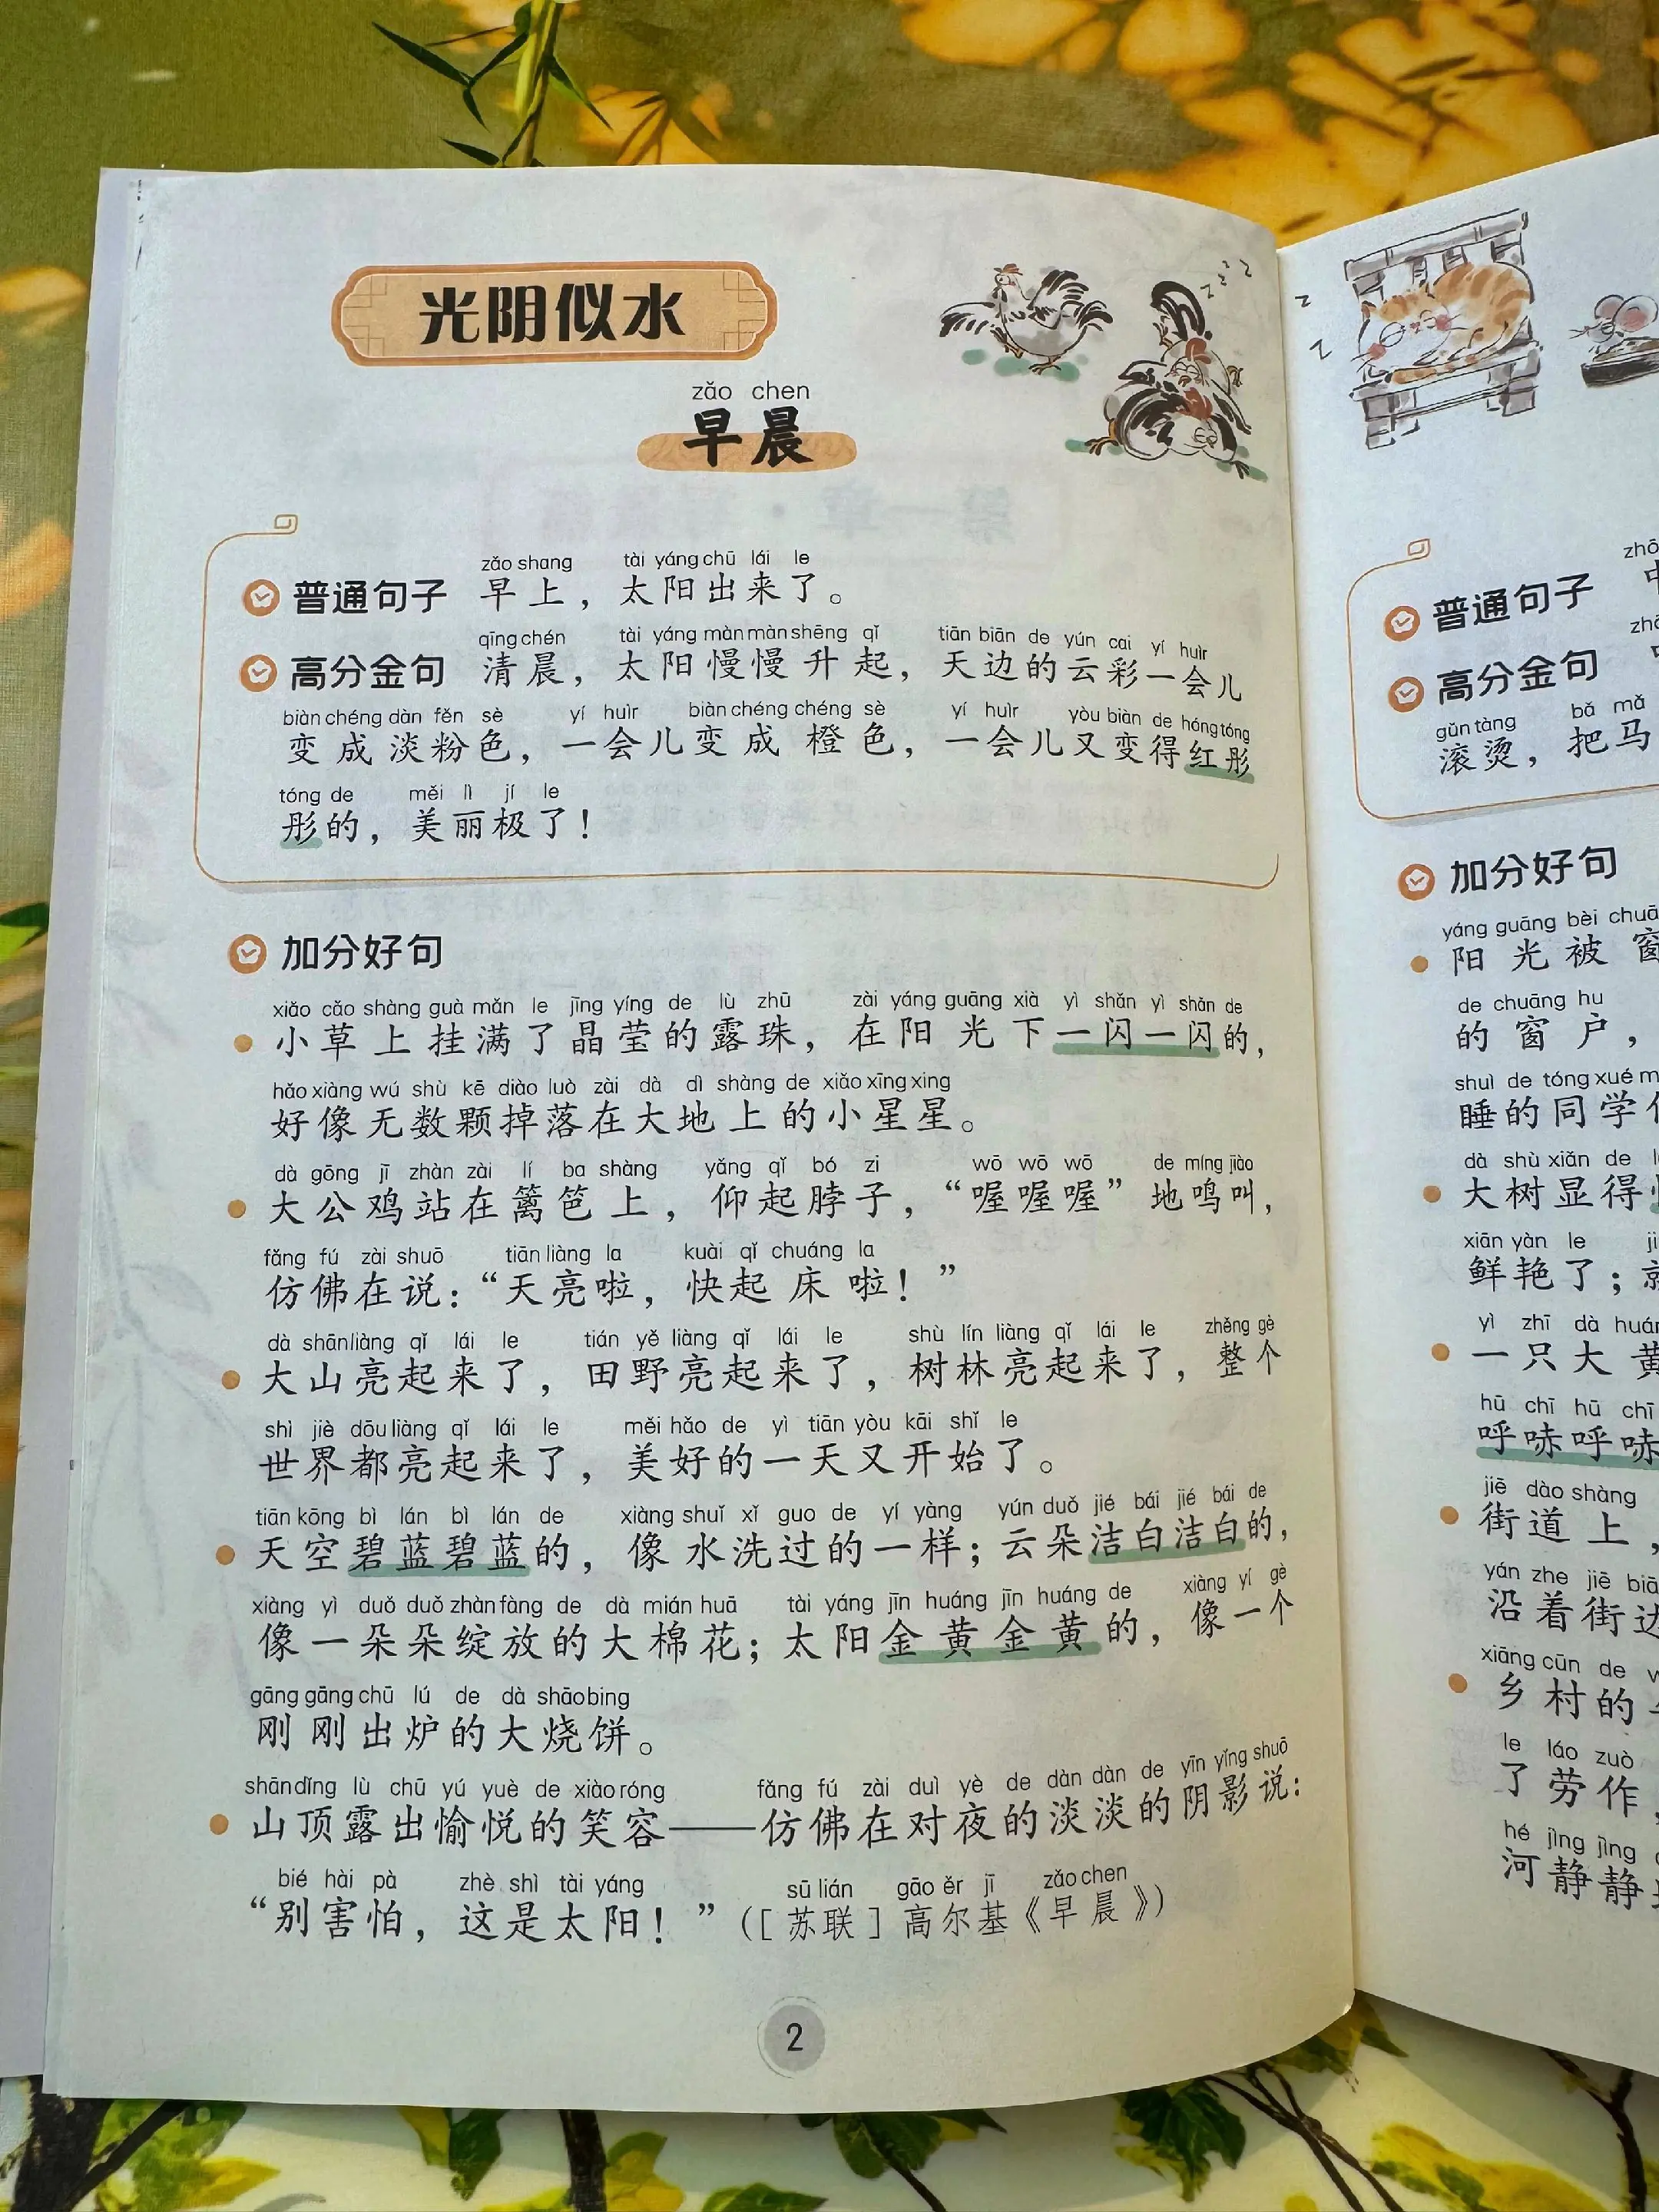 光阴似水
zǎo chen
早晨
zǎo shang tài yáng chū lái le
普通句子 早上，太阳出来了。
qīng chén tài yáng màn màn shēng qǐ tiān biān de yún cai yí huìr
高分金句 清晨，太阳慢慢升起，天边的云彩一会儿
biàn chéng dàn fěn sè yí huìr biàn chéng chéng sè yí huìr yòu biàn de hóng tóng
变成淡粉色，一会儿变成橙色，一会儿又变得红彤
tóng de měi lì jí le
彤的，美丽极了！
加分好句
xiǎo cǎo shàng guà mǎn le jīng yíng de lù zhū zài yáng guāng xià yì shǎn yì shǎn de
小草上挂满了晶莹的露珠，在阳光下一闪一闪的，
hǎo xiàng wú shù kē diào luò zài dà dì shàng de xiǎo xīng xing
好像无数颗掉落在大地上的小星星。
dà gōng jī zhàn zài lí ba shàng yǎng qǐ bó zi wō wō wō de míng jiào
大公鸡站在篱笆上，仰起脖子，“喔喔喔”地鸣叫，
fǎng fú zài shuō tiān liàng la kuài qǐ chuáng la
仿佛在说：“天亮啦，快起床啦！”
dà shān liàng qǐ lái le tián yě liàng qǐ lái le shù lín liàng qǐ lái le zhěng gè
大山亮起来了，田野亮起来了，树林亮起来了，整个
shì jiè dōu liàng qǐ lái le měi hǎo de yì tiān yòu kāi shǐ le
世界都亮起来了，美好的一天又开始了。
tiān kōng bì lán bì lán de xiàng shuǐ xǐ guo de yí yàng yún duǒ jié bái jié bái de
天空碧蓝碧蓝的，像水洗过的一样；云朵洁白洁白的，
xiàng yì duǒ duǒ zhàn fàng de dà mián huā tài yáng jīn huáng jīn huáng de xiàng yí gè
像一朵朵绽放的大棉花；太阳金黄金黄的，像一个
gāng gāng chū lú de dà shāo bing
刚刚出炉的大烧饼。
shān dǐng lù chū yú yuè de xiào róng fǎng fú zài duì yè de dàn dàn de yīn yǐng shuō
山顶露出愉悦的笑容——仿佛在对夜的淡淡的阴影说：
bié hài pà zhè shì tài yáng sū lián gāo ěr jī zǎo chen
“别害怕，这是太阳！”（［苏联］高尔基《早晨》）
2
普通句子
高分金句
gǔn tàng bǎ mǎ
滚烫，把马
加分好句
yáng guāng bèi
阳光被窗
de chuāng hu
的窗户，
shuì de tóng xué
睡的同学
dà shù xiǎn de
大树显得
xiān yàn le
鲜艳了；
yì zhī dà
一只大黄
hū chī hū chī
呼哧呼哧
jiē dào shàng
街道上，
yán zhe jiē
沿着街边
xiāng cūn de
乡村的
le láo zuò
了劳作，
hé jìng jìng
河静静